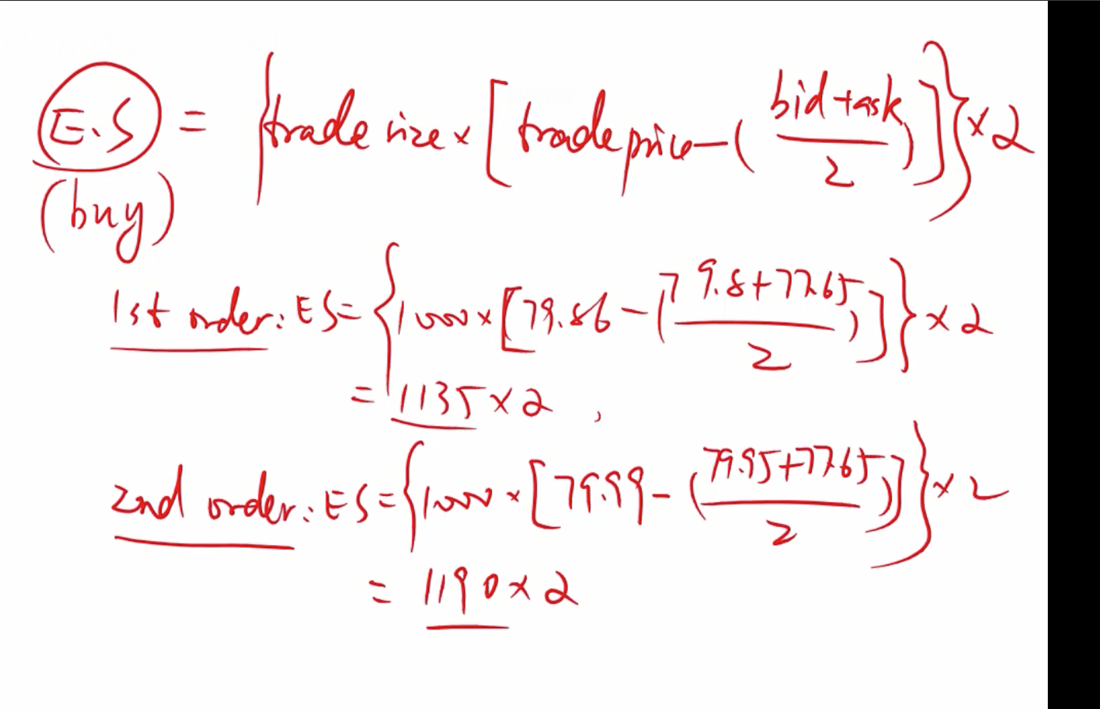 E.S = {trade size × [trade price − (bid+ask / 2)]} × 2
(buy)
1st order: ES = {1000 × [79.86 − (79.8+77.65 / 2)]} × 2
= 1135 × 2,
2nd order: ES = {1000 × [79.99 − (79.95+77.65 / 2)]} × 2
= 1190 × 2